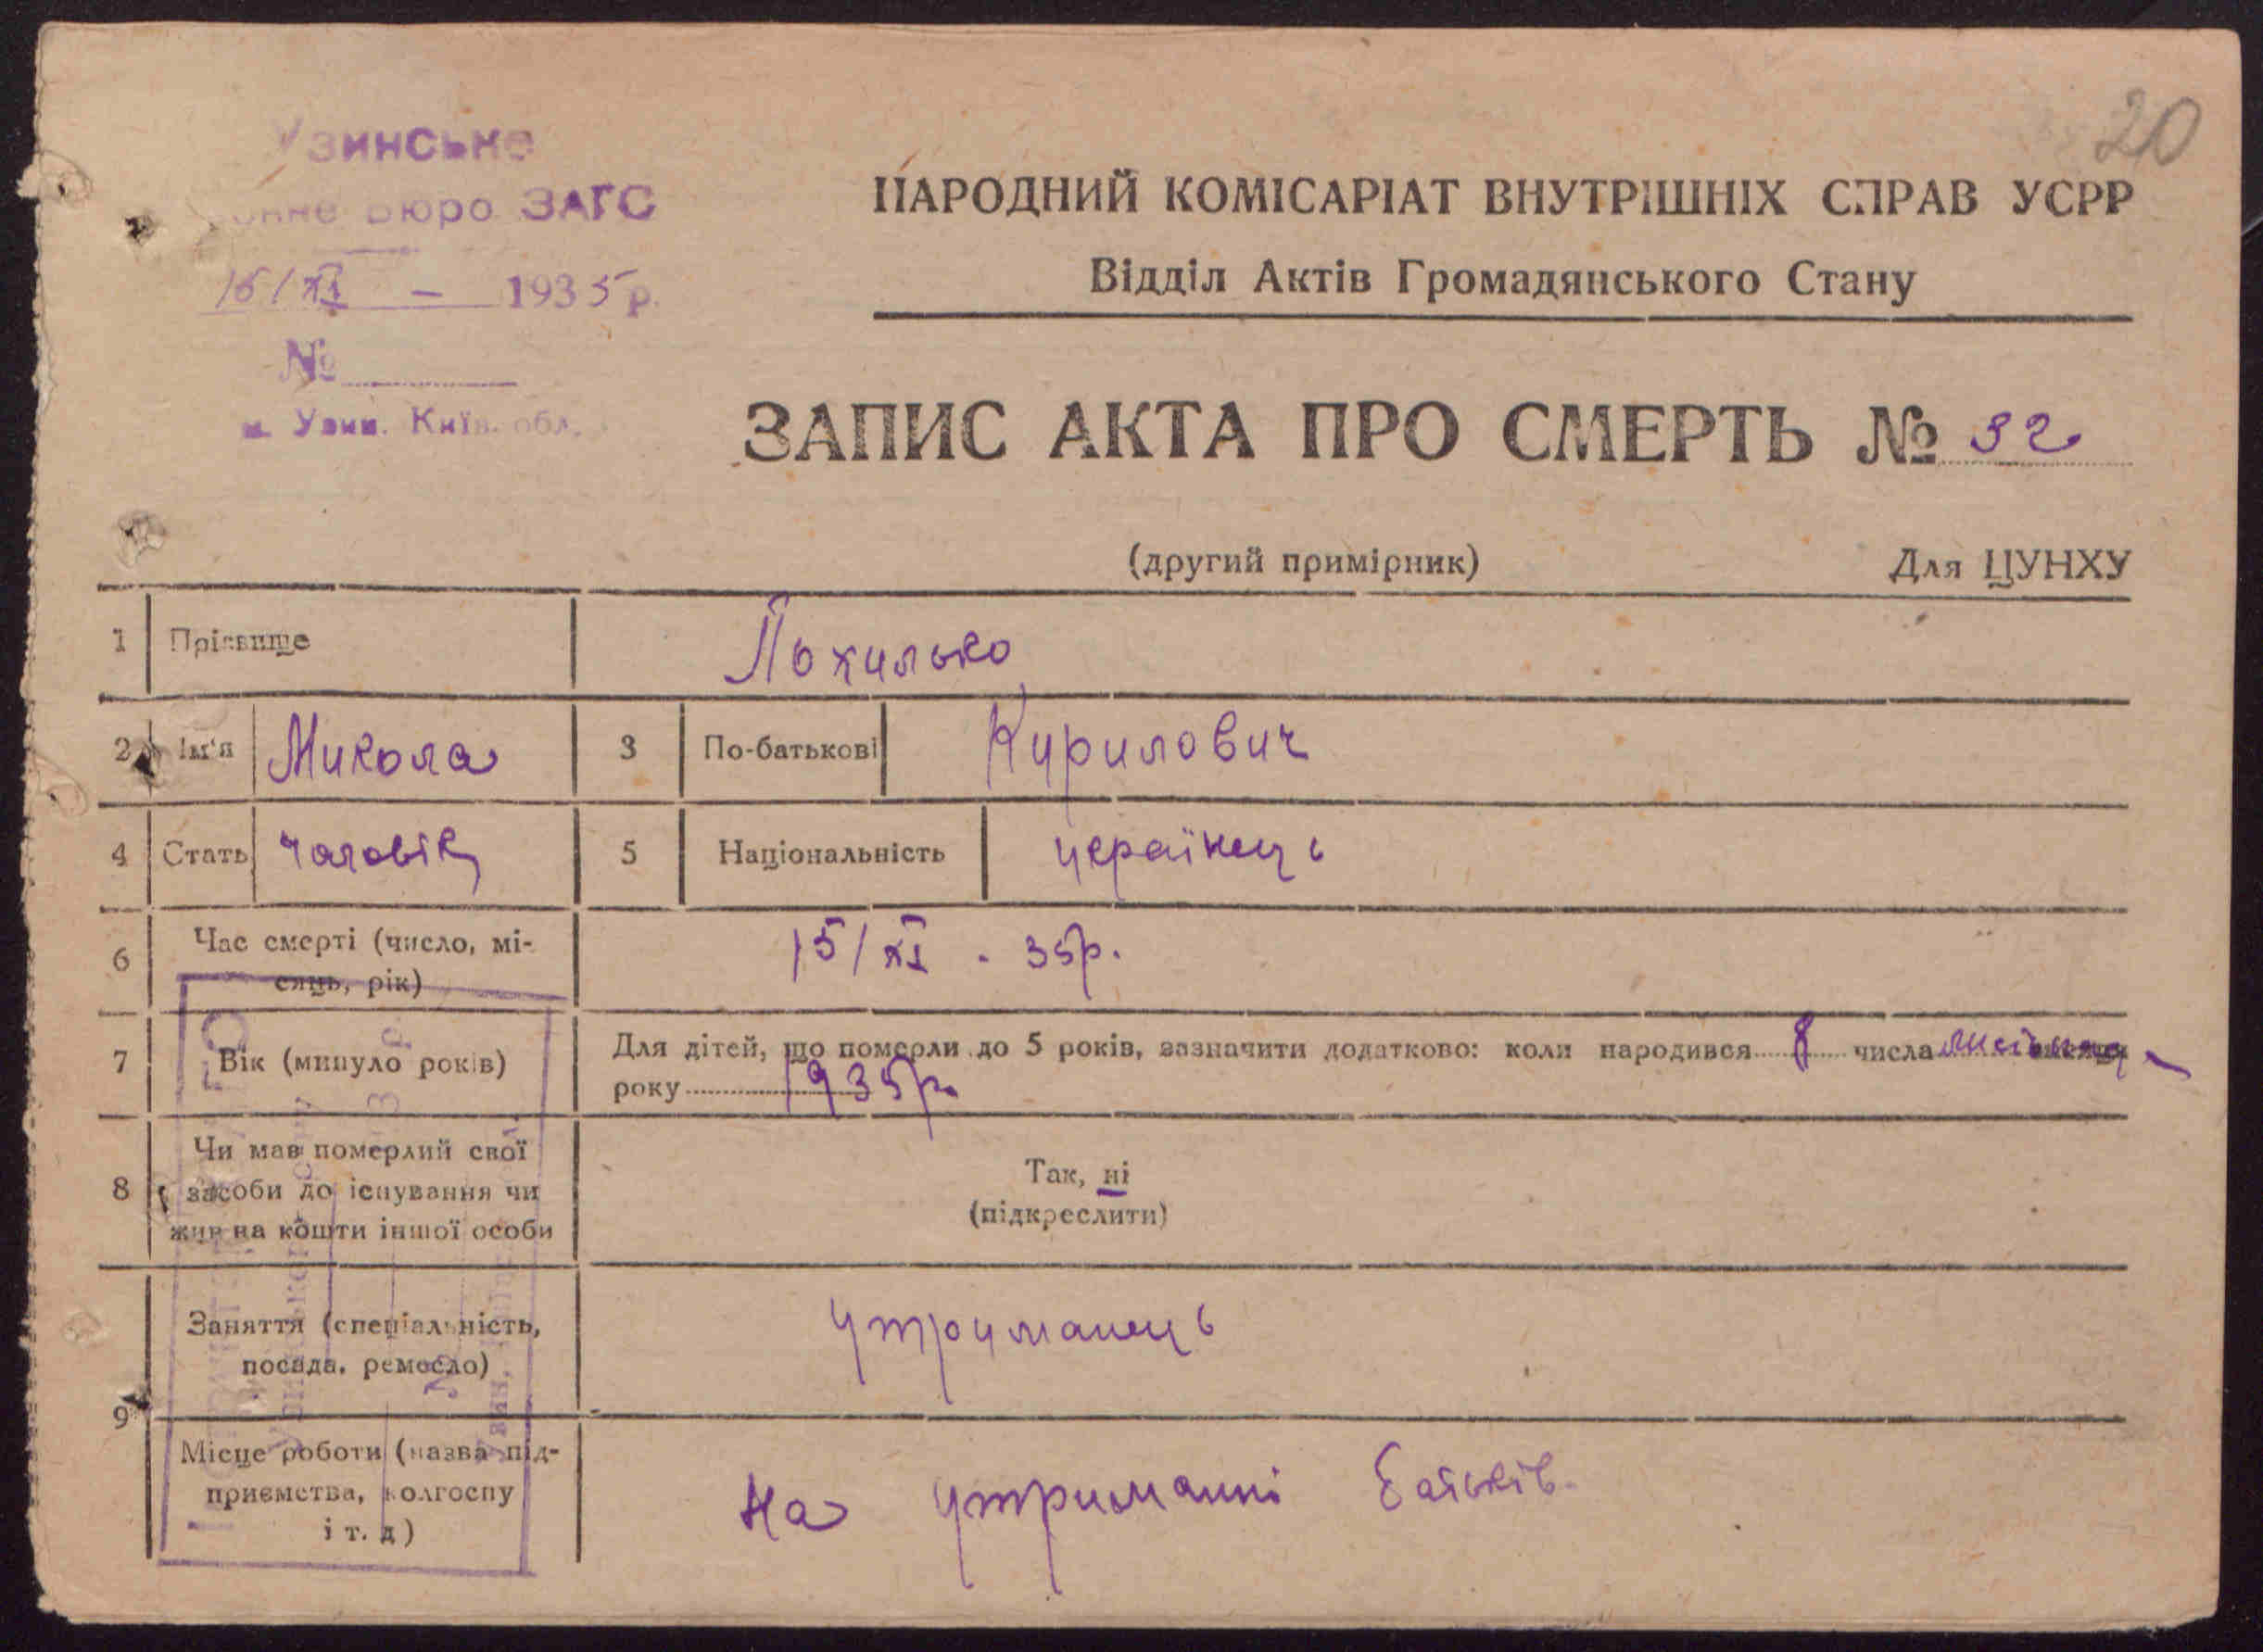 Узинське
бюро ЗАГС
15/XI – 1935 р.
№
м. Узин. Київ. обл.
20
НАРОДНИЙ КОМІСАРІАТ ВНУТРІШНІХ СПРАВ УСРР
Відділ Актів Громадянського Стану
ЗАПИС АКТА ПРО СМЕРТЬ № 32
(другий примірник) Для ЦУНХУ
1 Прізвище Похилько
2 Ім'я Микола 3 По-батькові Курилович
4 Стать чоловік 5 Національність українець
6 Час смерті (число, мі-
сяць, рік) 15/XI . 35р.
7 Вік (минуло років) Для дітей, що померли до 5 років, зазначити додатково: коли народився 8 числа
року 1935р.
8 Чи мав померлий свої
засоби до існування чи
жив на кошти іншої особи
Так, ні
(підкреслити)
9 Заняття (спеціальність,
посада, ремесло) утриманець
Місце роботи (назва під-
приємства, колгоспу
і т. д)
на утриманні батьків.